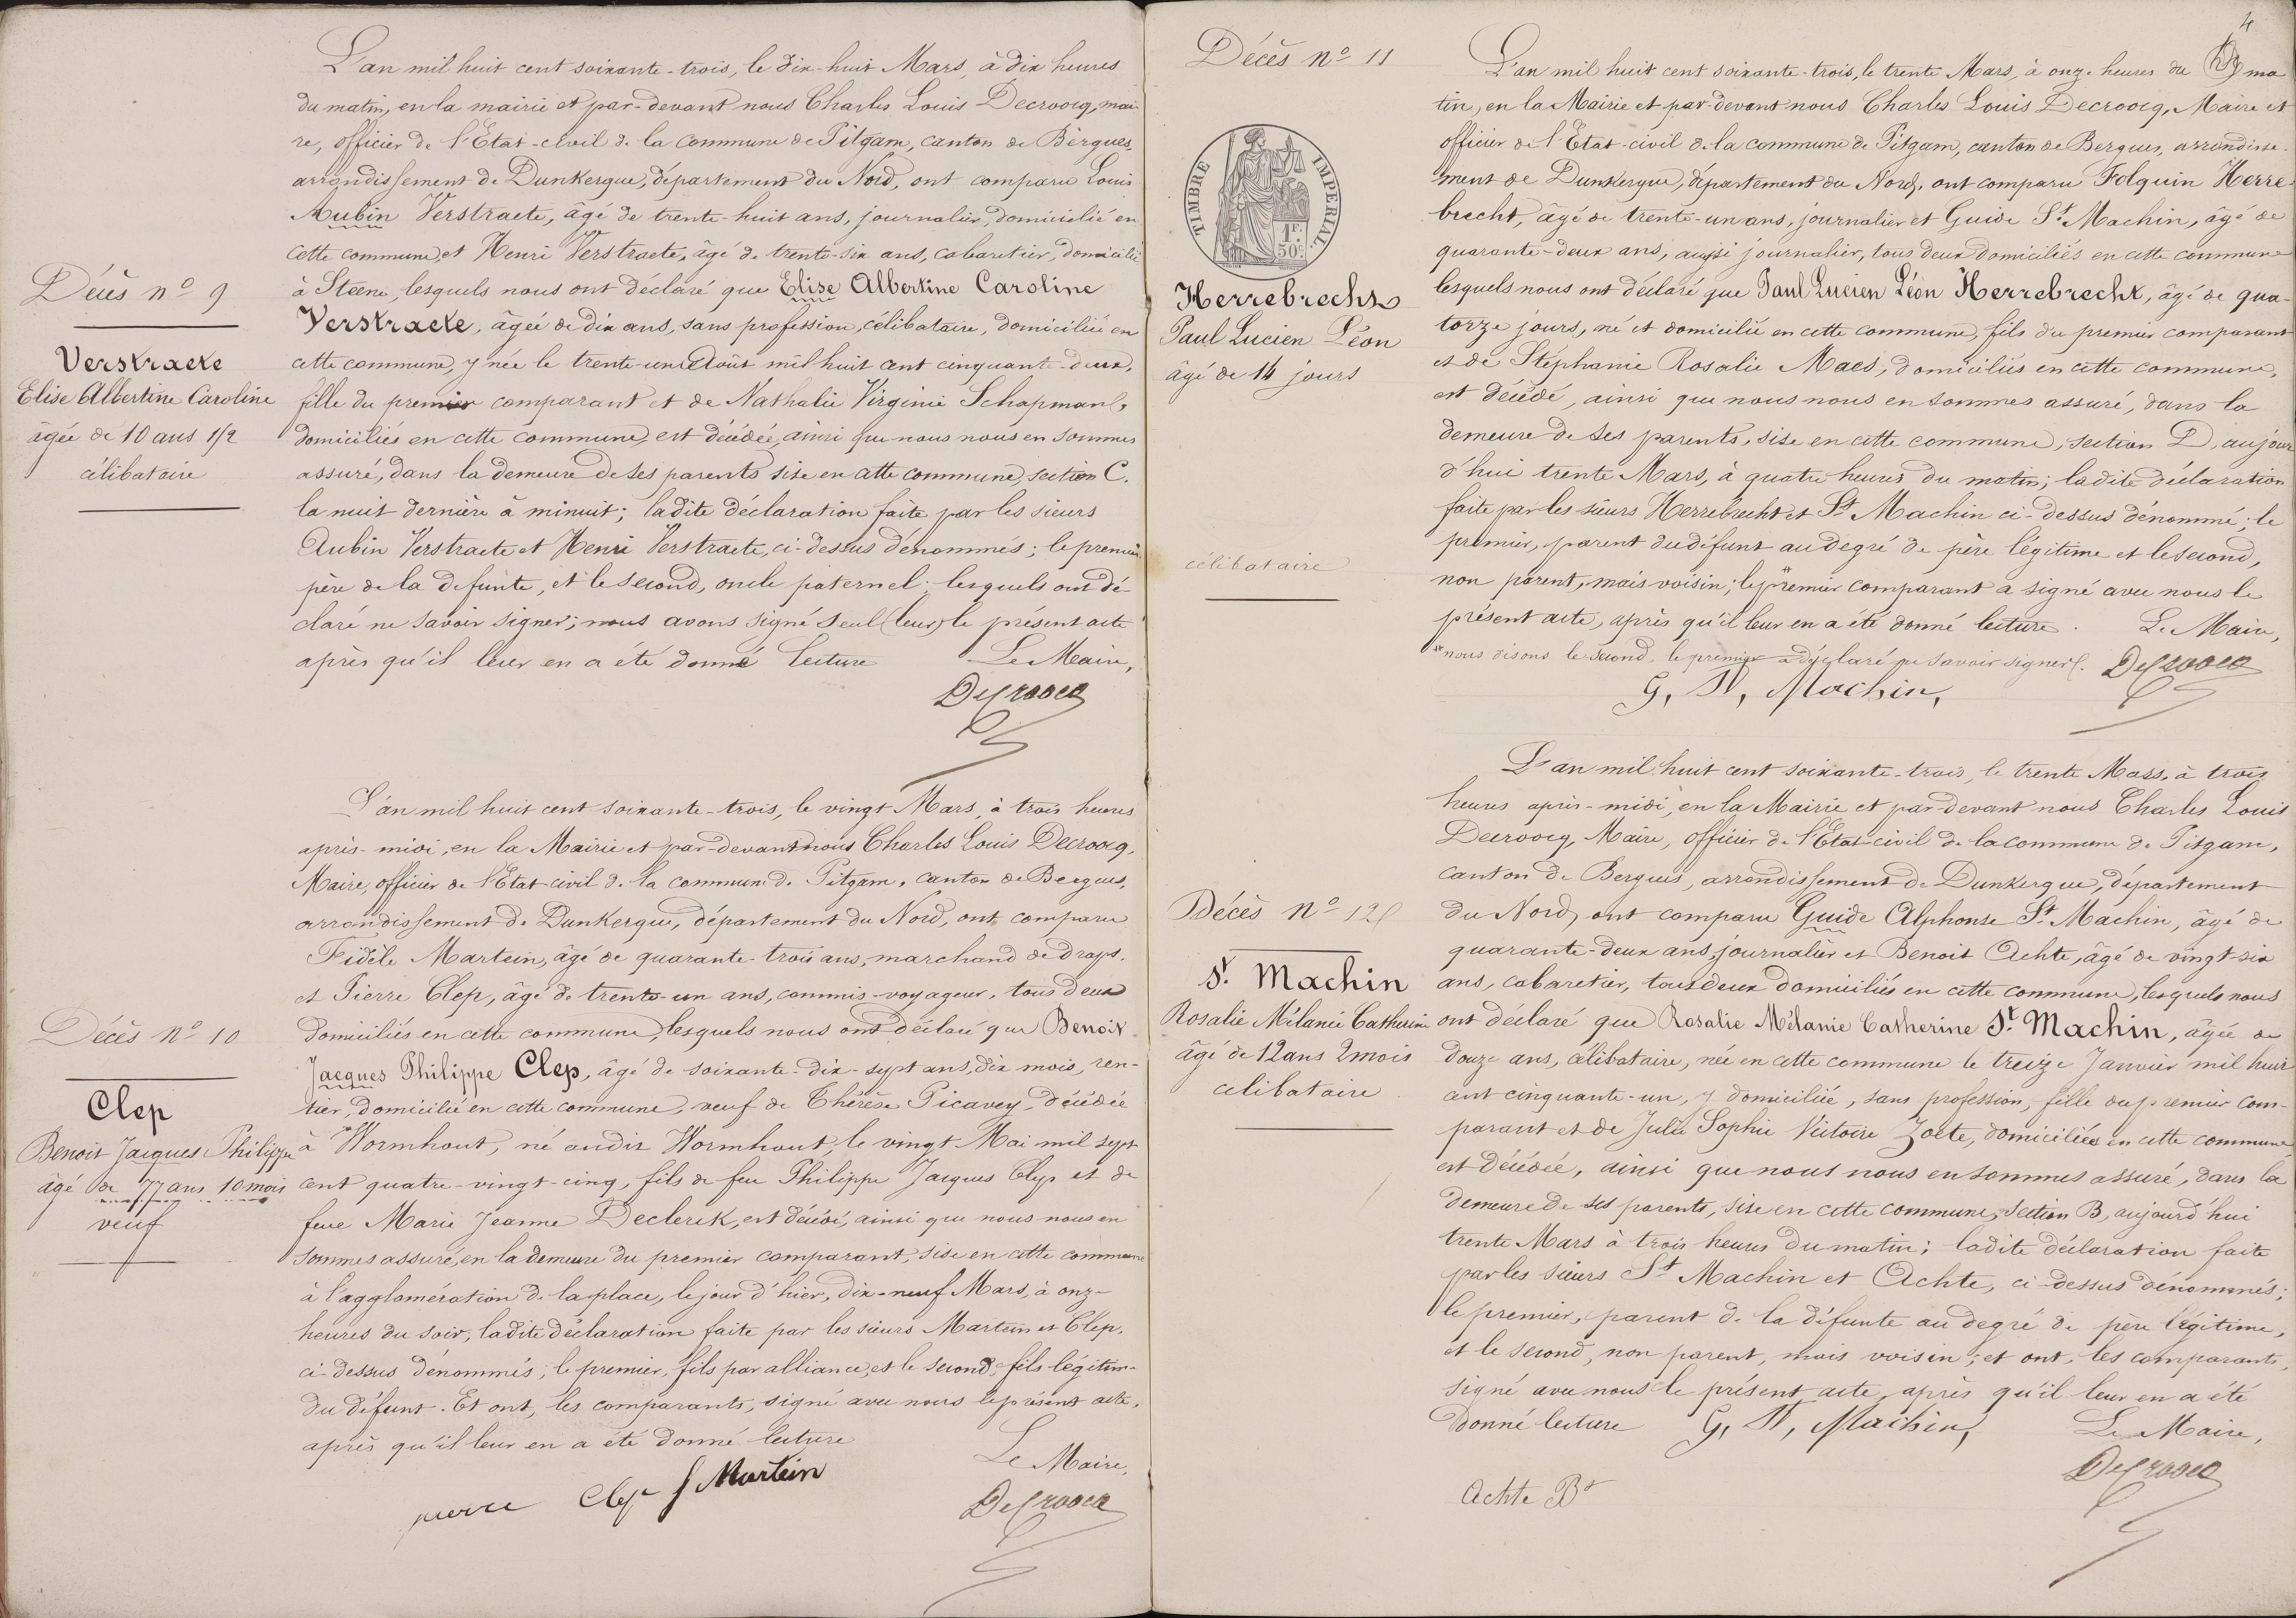 Décès nº 9
Verstraete
Elise Albertine Caroline
âgée de 10 ans 1/2
célibataire
L'an mil huit cent soixante-trois, le dix-huit Mars, à dix heures
du matin, en la mairie et par-devant nous Charles Louis Decroocq, mai-
re, officier de l'Etat-civil de la commune de Pitgam, canton de Bergues,
arrondissement de Dunkerque, département du Nord, ont comparu Louis
Aubin Verstraete, âgé de trente-huit ans, journalier, domicilié en
cette commune, et Henri Verstraete, âgé de trente-six ans, cabaretier, domicilié
à Steene, lesquels nous ont déclaré que Elise Albertine Caroline
Verstraete, âgée de dix ans, sans profession, célibataire, domiciliée en
cette commune, y née le trente-un Août mil huit cent cinquante-deux,
fille du premier comparant et de Nathalie Virginie Schapman,
domiciliés en cette commune, est décédée, ainsi que nous nous en sommes
assuré, dans la demeure de ses parents sise en cette commune, section C.
la nuit dernière à minuit; ladite déclaration faite par les sieurs
Aubin Verstraete et Henri Verstraete, ci-dessus dénommés; le premier
père de la défunte, et le second, oncle paternel; lesquels ont dé-
claré ne savoir signer; nous avons signé seul (leur) le présent acte
après qu'il leur en a été donné lecture Le Maire,
DeCroocq
Décès nº 10
Clep
Benoit Jacques Philippe
âgé de 77 ans 10 mois
veuf
L'an mil huit cent soixante-trois, le vingt Mars, à trois heures
après-midi, en la Mairie et par-devant nous Charles Louis Decroocq,
Maire, officier de l'Etat-civil de la commune de Pitgam, canton de Bergues,
arrondissement de Dunkerque, département du Nord, ont comparu
Fidèle Martein, âgé de quarante-trois ans, marchand de draps,
et Pierre Clep, âgé de trente-un ans, commis-voyageur, tous deux
domiciliés en cette commune, lesquels nous ont déclaré que Benoit
Jacques Philippe Clep, âgé de soixante-dix-sept ans, dix mois, ren-
tier, domicilié en cette commune, veuf de Thérèse Picavey, décédée
à Wormhout, né audit Wormhout, le vingt Mai mil sept
cent quatre-vingt-cinq, fils de feu Philippe Jacques Clep et de
feue Marie Jeanne Declerck, est décédé, ainsi que nous nous en
sommes assuré, en la demeure du premier comparant, sise en cette commune
à l'agglomération de la place, le jour d'hier, dix-neuf Mars, à onze
heures du soir; ladite déclaration faite par les sieurs Martein et Clep,
ci-dessus dénommés; le premier, fils par alliance, et le second, fils légitime
du défunt. Et ont, les comparants, signé avec nous le présent acte,
après qu'il leur en a été donné lecture
Le Maire,
pierre Clep f Martein
DeCroocq
4
Décès nº 11
TIMBRE IMPERIAL.
1F. 50c.
Herrebrecht
Paul Lucien Léon
âgé de 14 jours
célibataire
L'an mil huit cent soixante-trois, le trente Mars, à onze heures du ma
tin, en la Mairie et par-devant nous Charles Louis Decroocq, Maire et
officier de l'Etat-civil de la commune de Pitgam, canton de Bergues, arrondisse-
ment de Dunkerque, département du Nord, ont comparu Folquin Herre-
brecht, âgé de trente-un ans, journalier et Guide St. Machin, âgé de
quarante-deux ans, aussi journalier, tous deux domiciliés en cette commune
lesquels nous ont déclaré que Paul Lucien Léon Herrebrecht, âgé de qua-
torze jours, né et domicilié en cette commune, fils du premier comparant
et de Stéphanie Rosalie Maes, domiciliés en cette commune,
est décédé, ainsi que nous nous en sommes assuré, dans la
demeure de ses parents, sise en cette commune, section D, aujour
d'hui trente Mars, à quatre heures du matin; ladite déclaration
faite par les sieurs Herrebrecht et St. Machin ci-dessus dénommé; le
premier, parent du défunt au degré de père légitime et le second,
non parent, mais voisin; le *premier comparant a signé avec nous le
présent acte, après qu'il leur en a été donné lecture. Le Maire,
*nous disons le second. le premier a déclaré ne savoir signer. DeCroocq
G, St, Machin,
Décès nº 12
St. Machin
Rosalie Mélanie Catherine
âgé de 12 ans 2 mois
célibataire
L'an mil huit cent soixante-trois, le trente Mars, à trois
heures après-midi, en la Mairie et par-devant nous Charles Louis
Decroocq, Maire, officier de l'Etat-civil de la commune de Pitgam,
canton de Bergues, arrondissement de Dunkerque, département
du Nord, ont comparu Guide Alphonse St. Machin, âgé de
quarante-deux ans, journalier et Benoit Achte, âgé de vingt-six
ans, cabaretier, tous deux domiciliés en cette commune, lesquels nous
ont déclaré que Rosalie Mélanie Catherine St. Machin, âgée de
douze ans, célibataire, née en cette commune le treize Janvier mil huit
cent cinquante-un, y domiciliée, sans profession, fille du premier com-
parant et de Julie Sophie Victoire Zoete, domiciliés en cette commune
est décédée, ainsi que nous nous en sommes assuré, dans la
demeure de ses parents, sise en cette commune, section B, aujourd'hui
trente Mars à trois heures du matin; ladite déclaration faite
par les sieurs St. Machin et Achte, ci-dessus dénommés;
le premier, parent de la défunte au degré de père légitime,
et le second, non parent, mais voisin; et ont, les comparants,
signé avec nous le présent acte, après qu'il leur en a été
donné lecture G, St, Machin, Le Maire,
DeCroocq
Achte Bt